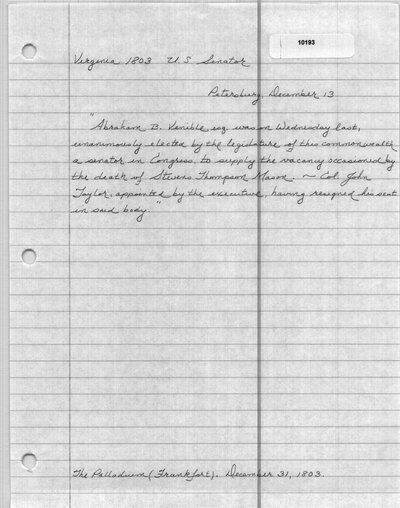 10193
Virginia 1803 U.S. Senator
Petersburg, December 13
"Abraham B. Venible esq. was on Wednesday last,
unanimously elected by the legislature of this commonwealth
a senator in Congress, to supply the vacancy occasioned by
the death of Stevens Thompson Mason. ~ Col. John
Taylor, appointed by the executive, having resigned his seat
in said body."
The Palladium (Frankfort). December 31, 1803.